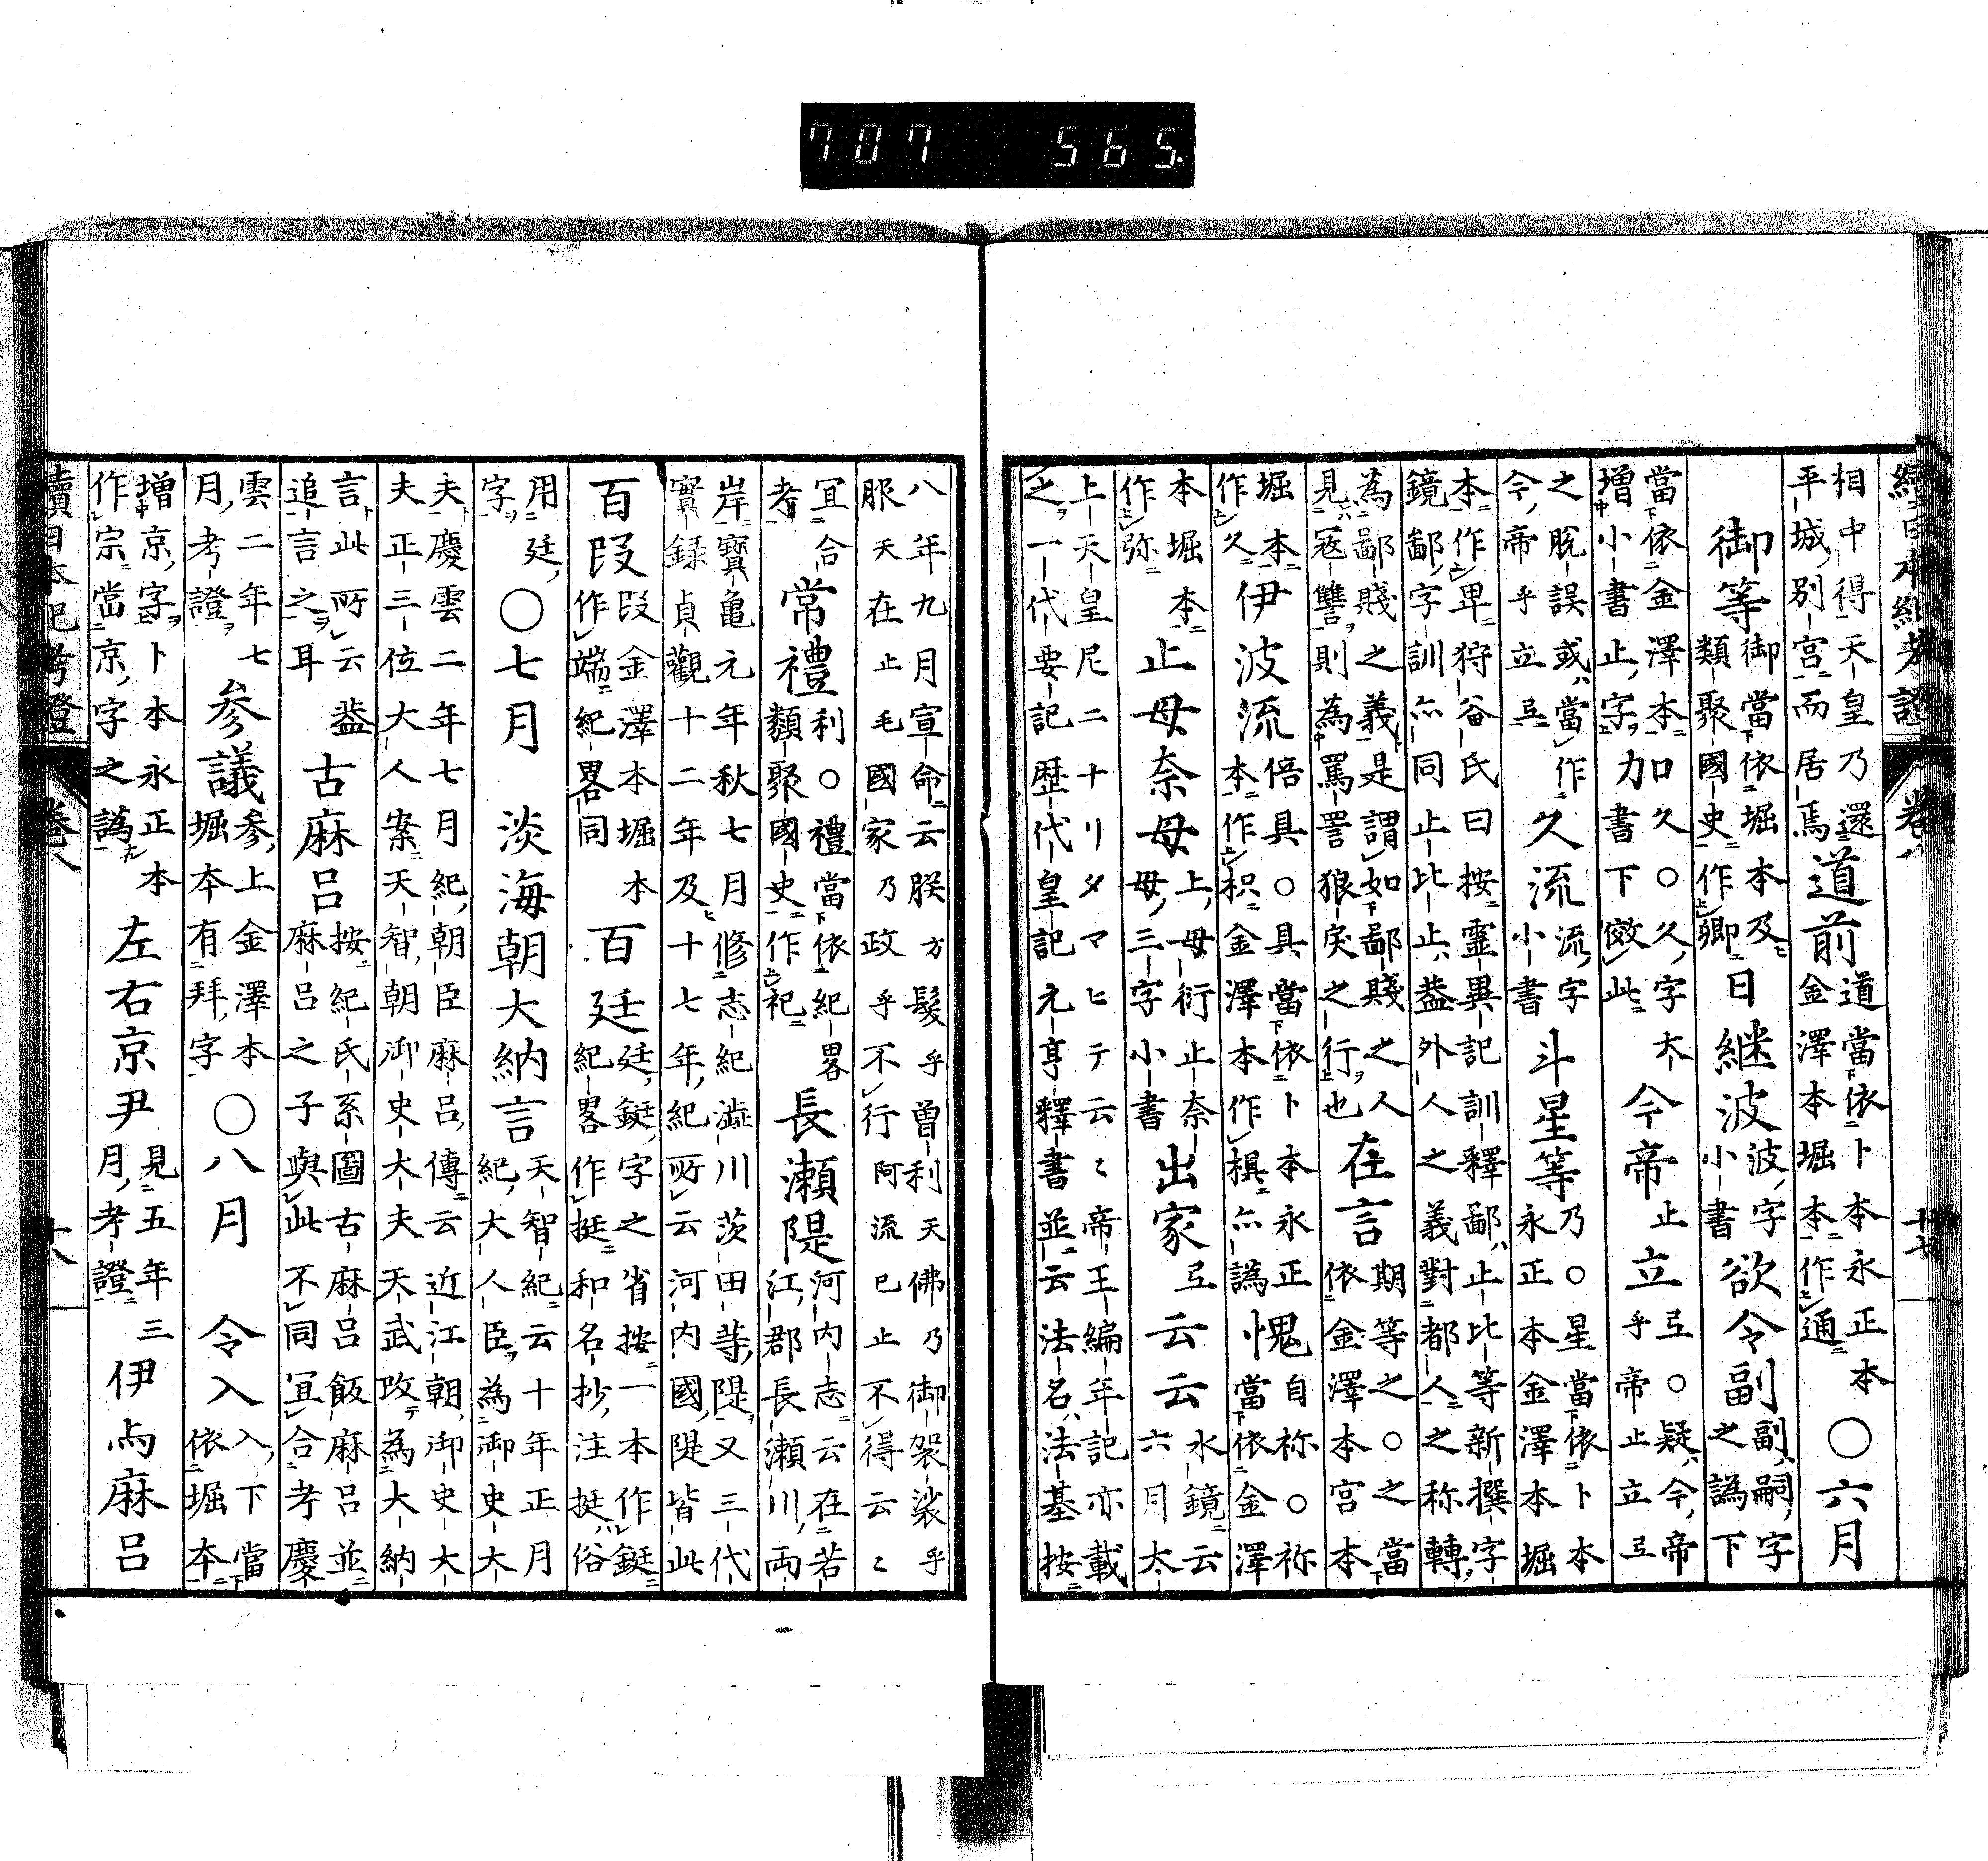 707 565.
續日本紀考證 卷八 十七
相中得天皇乃還
平城別宮而居焉
道前
道當依卜本永正本
金澤本堀本作通
○六月
御等
御當依堀本及
類聚國史作卿
日継波
波字
小書
欲令副
副嗣字
之譌下
當依金澤本
增小書止字
力口久○久字大
書下傚此
今帝
止㢧○疑今帝
乎帝止立㢧
立
之脫誤或當作
今帝乎立㢧
久流
流字
小書
斗星等
乃○星當依卜本
永正本金澤本堀
本作卑狩谷氏曰按霊異記訓釋鄙止比等新撰字
鏡鄙字訓亦同止比止蓋外人之義對都人之称轉
為鄙賤之義是謂如鄙賤之人
見寇讐則為罵詈狼戾之行也
在言
期等之○之當
依金澤本宮本
堀本
作久
伊波流
倍具○具當依卜本永正
本作枳金澤本作椇亦譌
愧
自祢○祢
當依金澤
本堀本
作弥
止母奈母
上母衍止奈
母三字小書
出家
㢧
云云
水鏡云
六月太
上天皇尼ニナリタマヒテ云〻帝王編年記亦載
之一代要記歴代皇記元亨釋書並云法名法基按
八年九月宣命云朕方髮乎曽利天佛乃御袈裟乎
服天在止毛國家乃政乎不行阿流已止不得云〻
冝合
考
常禮
利○禮當依紀畧
類聚國史作祀
長瀬隄
河内志云在若
江郡長瀬川両
岸寳亀元年秋七月修志紀澁川茨田等隄又三代
實録貞觀十二年及十七年紀所云河内國隄皆此
百段
段金澤本堀本
作端紀畧同
百廷
廷鋌字之省按一本作鋌
紀畧作挺和名抄注挺俗
用廷
字
○七月
淡海朝大納言
天智紀云十年正月
紀大人臣為御史大
夫慶雲二年七月紀朝臣麻呂傳云近江朝御史大
夫正三位大人案天智朝御史大夫天武改為大納
言此所云蓋
追言之耳
古麻呂
按紀氏系圖古麻呂飯麻呂並
麻呂之子與此不同冝合考慶
雲二年七
月考證
参議
参上金澤本
堀本有拜字
○八月
令入
入下當
依堀本
增京字卜本永正本
作宗當京字之譌
左右京尹
見五年三
月考證
伊与麻呂
續日本紀考證 卷八 十八